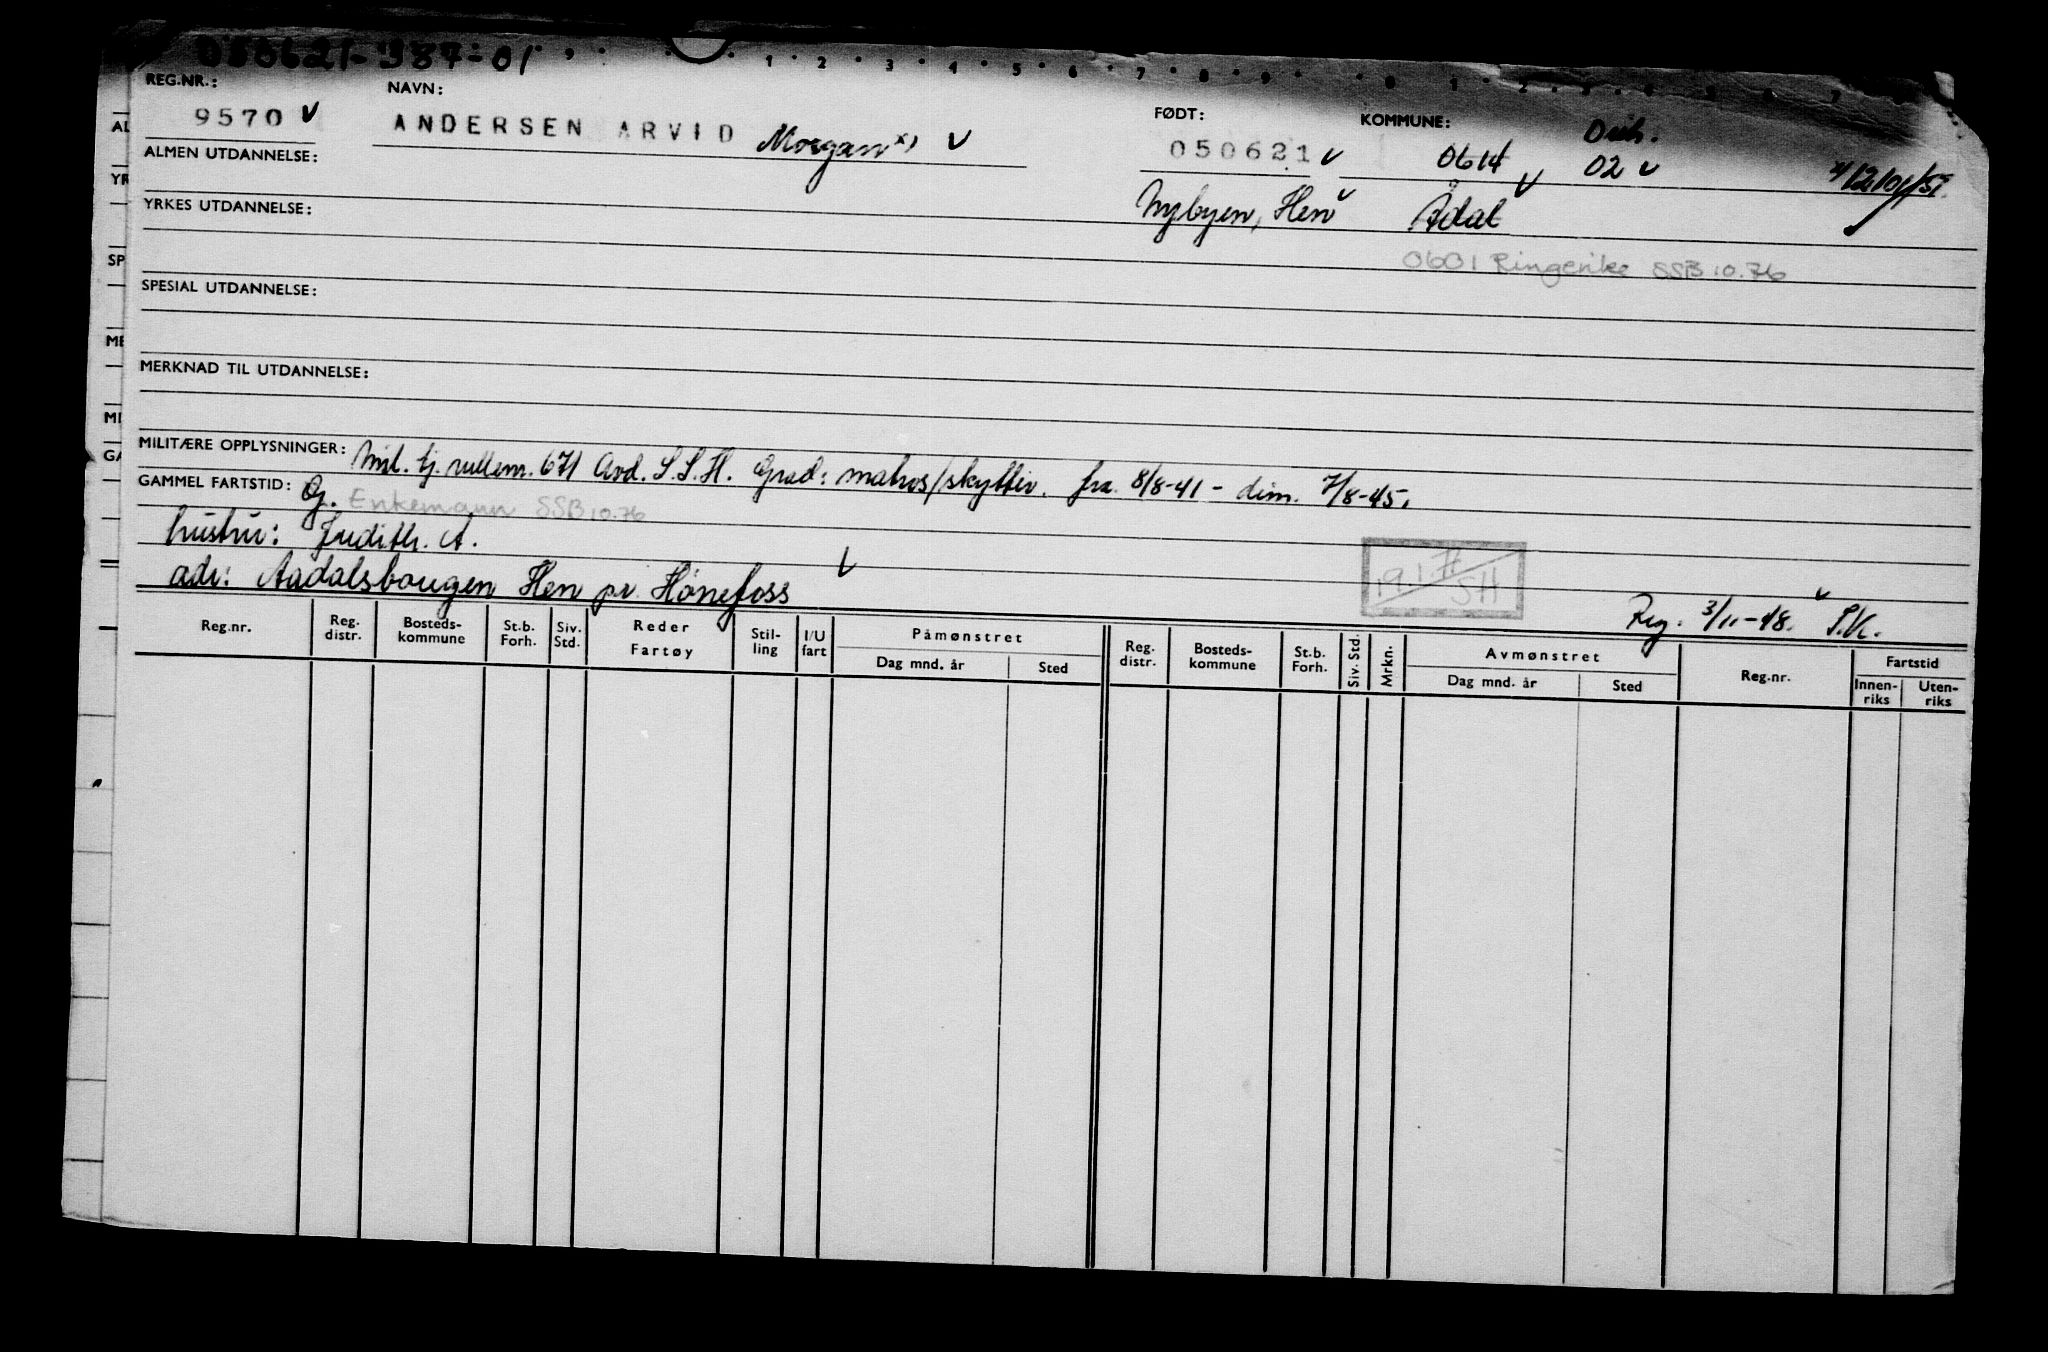 050621-387-01
1 2 3 4 5 6 7 8 9 0 1 2 3 4 5 6 7
REG.NR.: NAVN: FØDT: KOMMUNE:
9570 ANDERSEN ARVID Morgan x) 050621 0614 02
ALMEN UTDANNELSE:
Nybyen, Hen Ådal
YRKES UTDANNELSE:
0601 Ringerike SSB 10.76
SPESIAL UTDANNELSE:
MERKNAD TIL UTDANNELSE:
MILITÆRE OPPLYSNINGER: Mil. tj. rullenr. 671 Avd. S.S.H. Grad: matros/skytter. fra 8/8-41 - dim. 7/8-45.
GAMMEL FARTSTID: Gj. Enkemann SSB 10.76
hustru: Judith. A.
adr: Aadalsbougen Hen pr. Hønefoss
19.1.
SH
Reg. 3/11-48.
Reg.nr. Reg. distr. Bosteds-kommune St.b. Forh. Siv. Std. Reder Fartøy Stil-ling I/U fart Påmønstret Dag mnd. år Sted Reg. distr. Bosteds-kommune St.b. Forh. Siv. Std. Mrkn. Avmønstret Dag mnd. år Sted Reg.nr. Fartstid Innen-riks Uten-riks
AL
YR
SP
ME
MI
GA